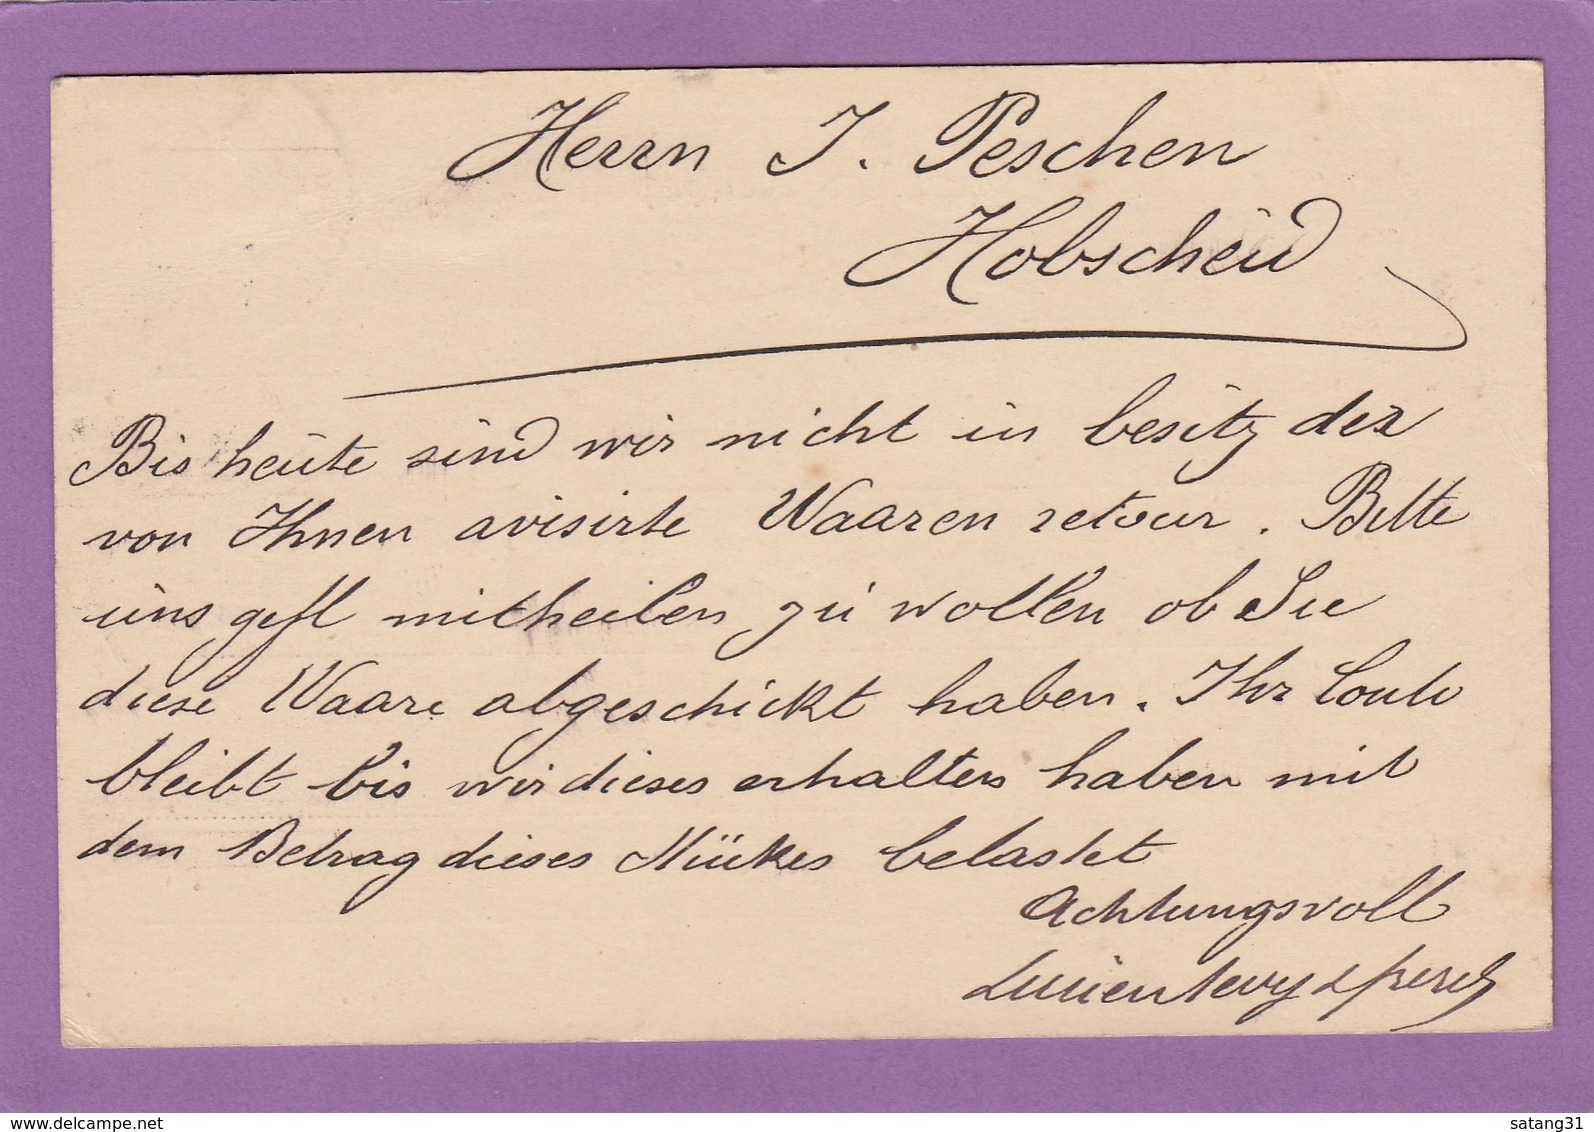 Herrn J. Peschen
Hobscheid
Bis heute sind wir nicht in besitz der
von Ihnen avisirte Waaren retour. Bitte
uns gefl mitheilen zu wollen ob Sie
diese Waare abgeschickt haben. Ihr Conto
bleibt bis wir dieses erhalten haben mit
dem Betrag dieses Stückes belastet
Achtungsvoll
Lucien Levy & frères
www.delcampe.net
satang31